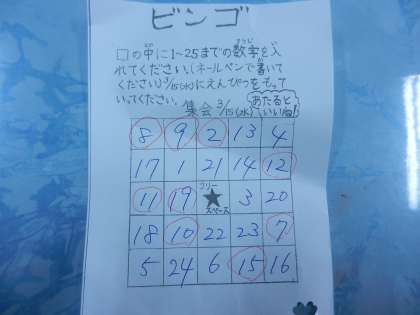 ビンゴ
□の中に1~25までの数字を入
れてください。(ネールペンで書いて
ください)3/15(水)にえんぴつをもって
いってください。
集会3/15(水)
あたると
いいね!
8 9 2 13 4
17 1 21 14 12
11 19 フリー
★
スペース 3 20
18 10 22 23 7
5 24 6 15 16